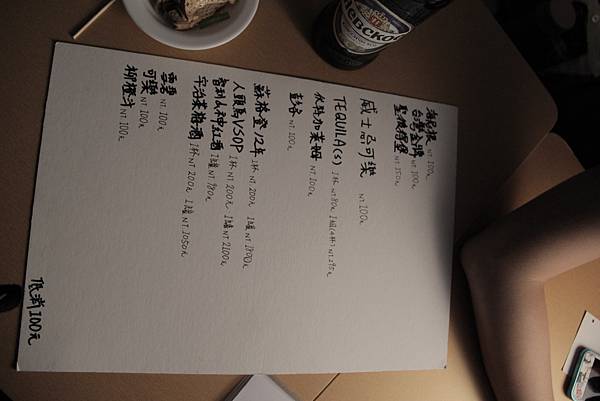 海尼根 NT.100元
台灣金牌 NT.100元
聖彼得堡 NT.150元
威士忌可樂 NT.100元
TEQUILA(s) 1杯 NT.80元 1組(4杯) NT.295元
伏特加萊姆 NT.100元
NT.100元
蘇格登12年 1杯 NT.200元 1罐 NT.1800元
人頭馬VSOP 1杯 NT.200元 1罐 NT.2100元
智利女神紅酒 1罐 NT.980元
宇治茉梅酒 1杯 NT.200元 1罐 NT.1050元
NT.100元
可樂 NT.100元
柳橙汁 NT.100元
低消100元
ЕВСКО